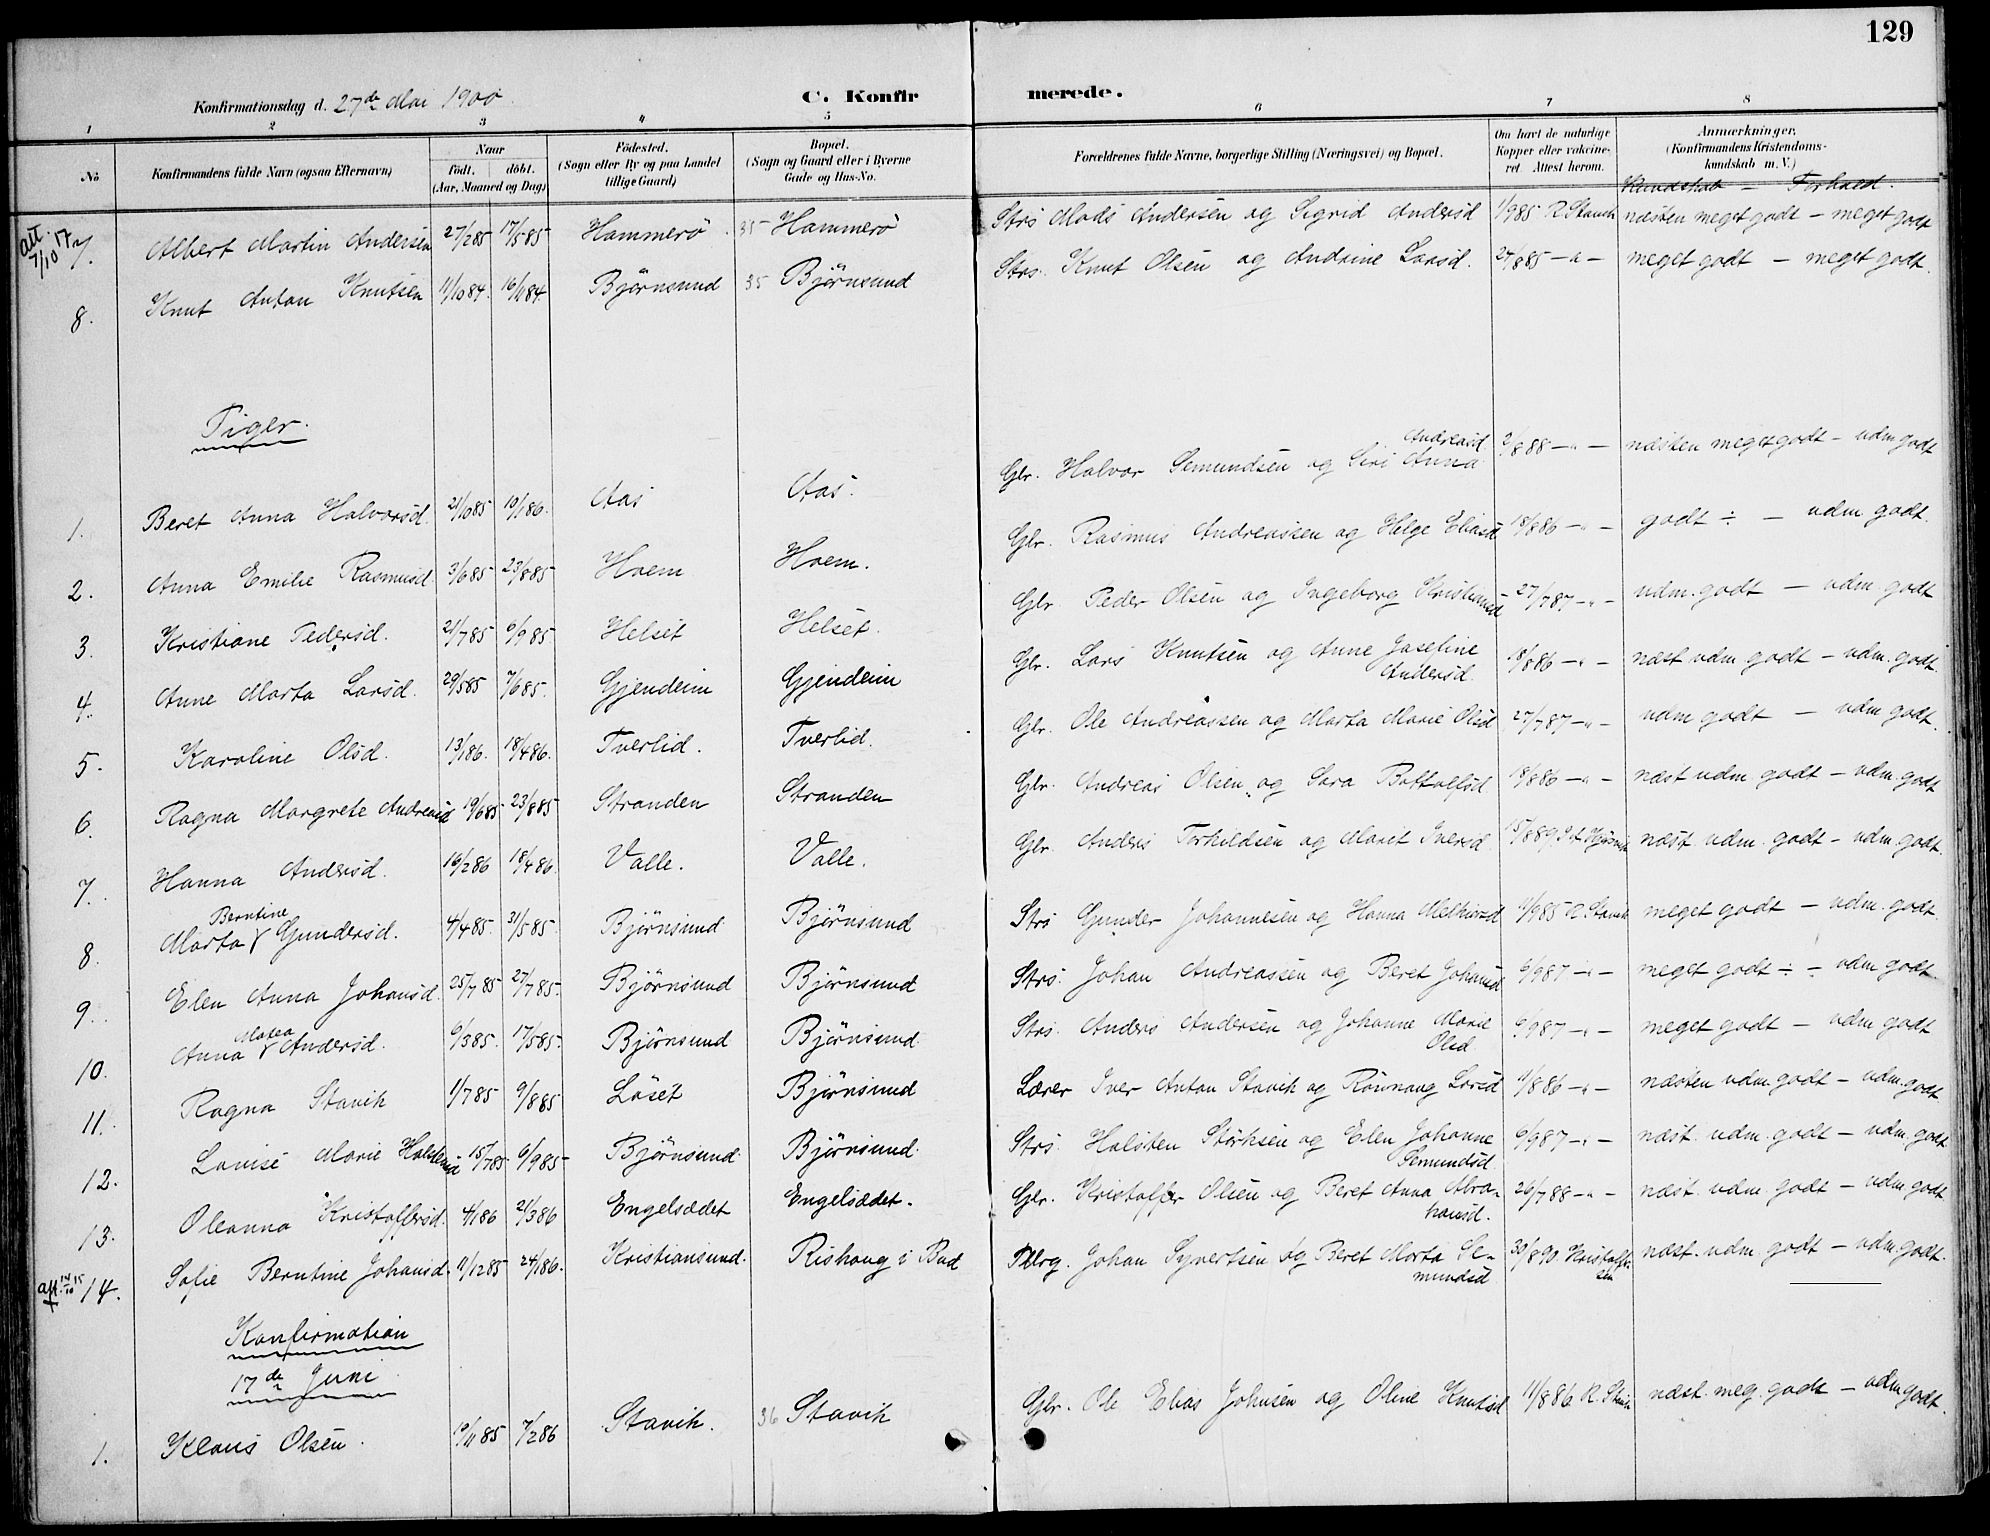 129
Konfirmationsdag d. 27de Mai 1900. C. Konfirmerede.
1 2 3 4 5 6 7 8
No Konfirmandens fulde Navn (ogsaa Efternavn) Naar født. døbt. (Aar, Maaned og Dag) Fødested. (Sogn eller By og paa Landet tillige Gaard) Bopæl. (Sogn og Gaard eller i Byerne Gade og Hus-No. Forældrenes fulde Navne, borgerlige Stilling (Næringsvei) og Bopæl. Om havt de naturlige Kopper eller vakcineret. Attest herom. Anmærkninger. (Konfirmandens Kristendomskundskab m. V.)
Kundskab - Forhold.
att. 17/7/10 7. Albert Martin Andersen 27/2 85 17/5 85 Hammerö 35 Hammerö Strs Mads Andersen og Sigrid Andersd 1/9 85 R Stavik næsten meget godt - meget godt
8. Knut Anton Knutsen 11/10 84. 16/11 84 Björnsund 35 Björnsund Strs. Knut Olsen og Andrine Larsd. 24/8 85 - " - meget godt - meget godt.
Piger.
1. Beret Anna Halvorsd. 21/10 85 10/1 86. Aas Aas. Glr. Halvor Semundsen og Siri Anna Andreasd. 2/8 88 - " - næsten meget godt - udm godt
2. Anna Emilie Rasmusd 3/6 85 23/8 85 Hoem Hoem. Glr. Rasmus Andreassen og Helge Eliasd 18/8 86 - " - godt ÷ - udm. godt.
3. Kristiane Pedersd. 21/7 85 6/9 85 Helset Helset. Glr Peder Olsen og Ingeborg Kristiansd 27/7 87 - " - udm. godt - udm. godt
4. Anne Marta Larsd. 29/5 85 7/6 85. Gjendeim Gjendeim Glr. Lars Knutsen og Anne Joseline Andersd. 18/8 86 - " - næst udm godt - udm. godt.
5. Karoline Olsd. 13/1 86. 18/4 86. Tverlid. Tverlid. Glr. Ole Andreassen og Marta Marie Olsd 27/7 87 - " - udm godt - udm godt.
6. Ragna Margrete Andreasd 19/6 85 23/8 85 Stranden Stranden Glr. Andreas Olsen og Sara Bottolfsd 18/8 86 - " - næst udm. godt - udm. godt
7. Hanna Andersd. 16/2 86 18/4 86. Valle. Valle. Glr. Anders Torkildsen og Marit Iversd 15/8 89 næst udm. godt - udm. godt.
8. Marta Berntine Gundersd. 4/4 85. 31/5 85. Björnsund Björnsund Strs Gunder Johannesen og Hanna Mathiasd 1/9 85 R. Stavik meget godt - udm. godt.
9. Elen Anna Johansd. 25/7 85 27/7 85. Björnsund Björnsund Strs. Johan Andreassen og Beret Johansd 6/9 87 - " - meget godt ÷ - udm godt
10. Anna Matea Andersd. 6/3 85. 17/5 85. Björnsund Björnsund Strs. Anders Andersen og Johanne Marie Olsd. 6/9 87 - " - meget godt - udm godt
11. Ragna Stavik 1/7 85 9/8 85 Löset Björnsund Lærer Iver Anton Stavik og Rönnaug Larsd 11/8 86 - " - næsten udm. godt - udm. godt
12. Lovise Marie Halstensd 15/7 85 6/9 85 Björnsund. Björnsund. Strs. Halsten Störksen og Elen Johanne Semundsd. 6/9 87 - " - næst. udm. godt - udm. godt
13. Oleanna Kristoffersd. 4/1 86 21/3 86 Engelsædet Engelsædet. Glr. Kristoffer Olsen og Beret Anna Abrahamsd. 26/7 88 - " - næst. udm. godt - udm. godt
att. 14/10 15 14. Sofie Berntine Johansd 11/12 85 24/1 86. Kristiansund. Rishaug i Bud Johan Syvertsen og Beret Marta Semundsd 30/8 90. Kristoffersen næst. udm. godt - udm. godt.
Konfirmation
17de Juni
1. Klaus Olsen. 19/11 85 7/2 86 Stavik. 36 Stavik Glr. Ole Elias Johnsen og Oline Knutsd 11/8 86 R. Stavik næst. meg. godt - udm godt.